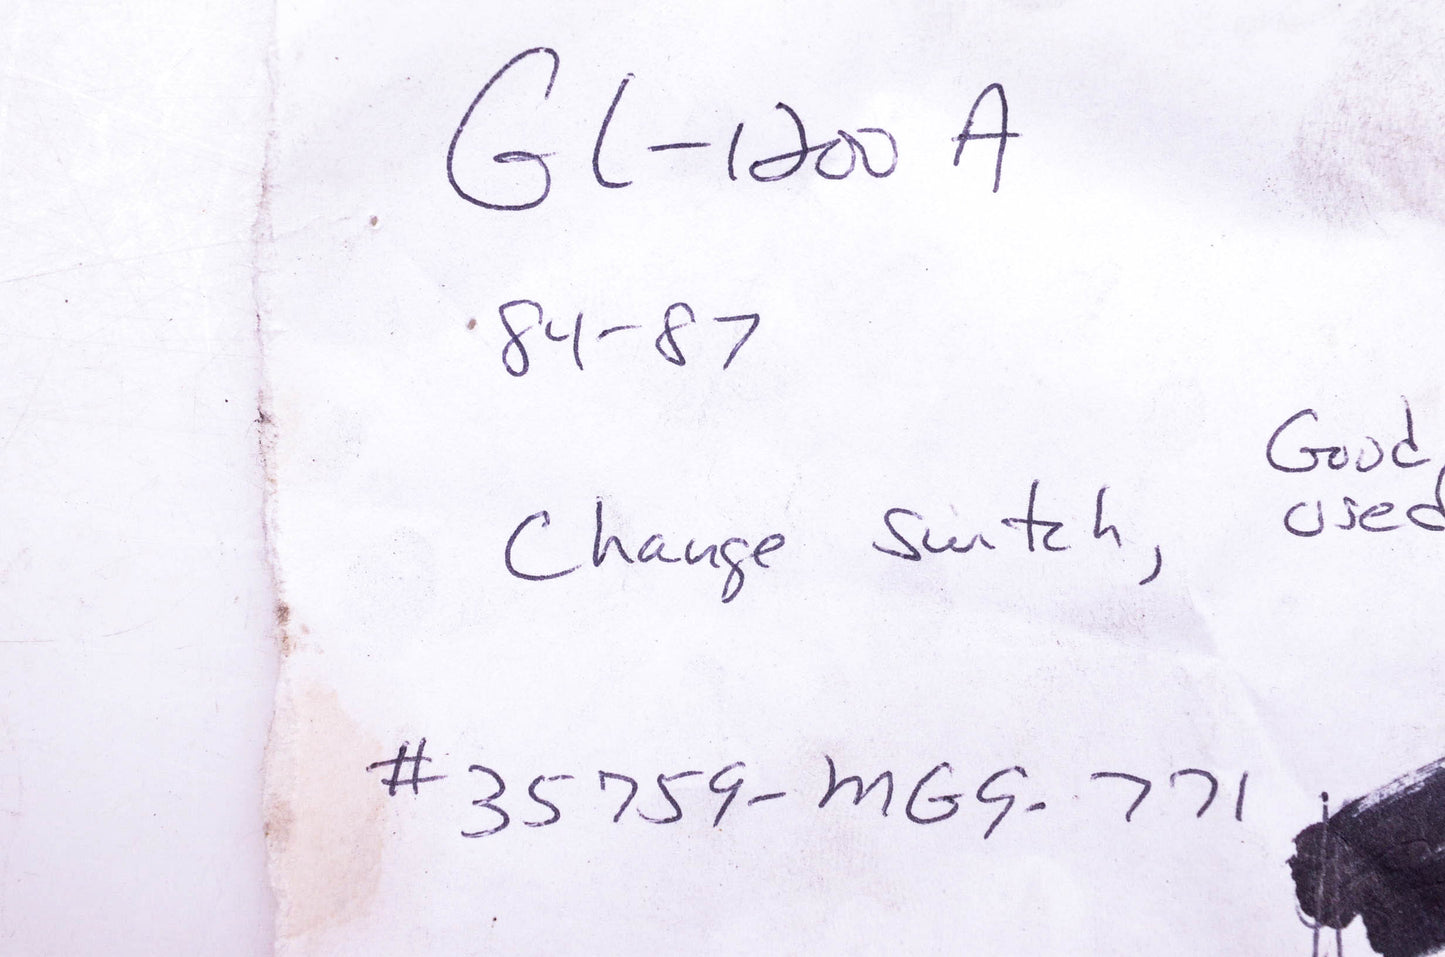 GL-1200 A
84-87
Change switch,
Good,
used
#35759-MG9-771